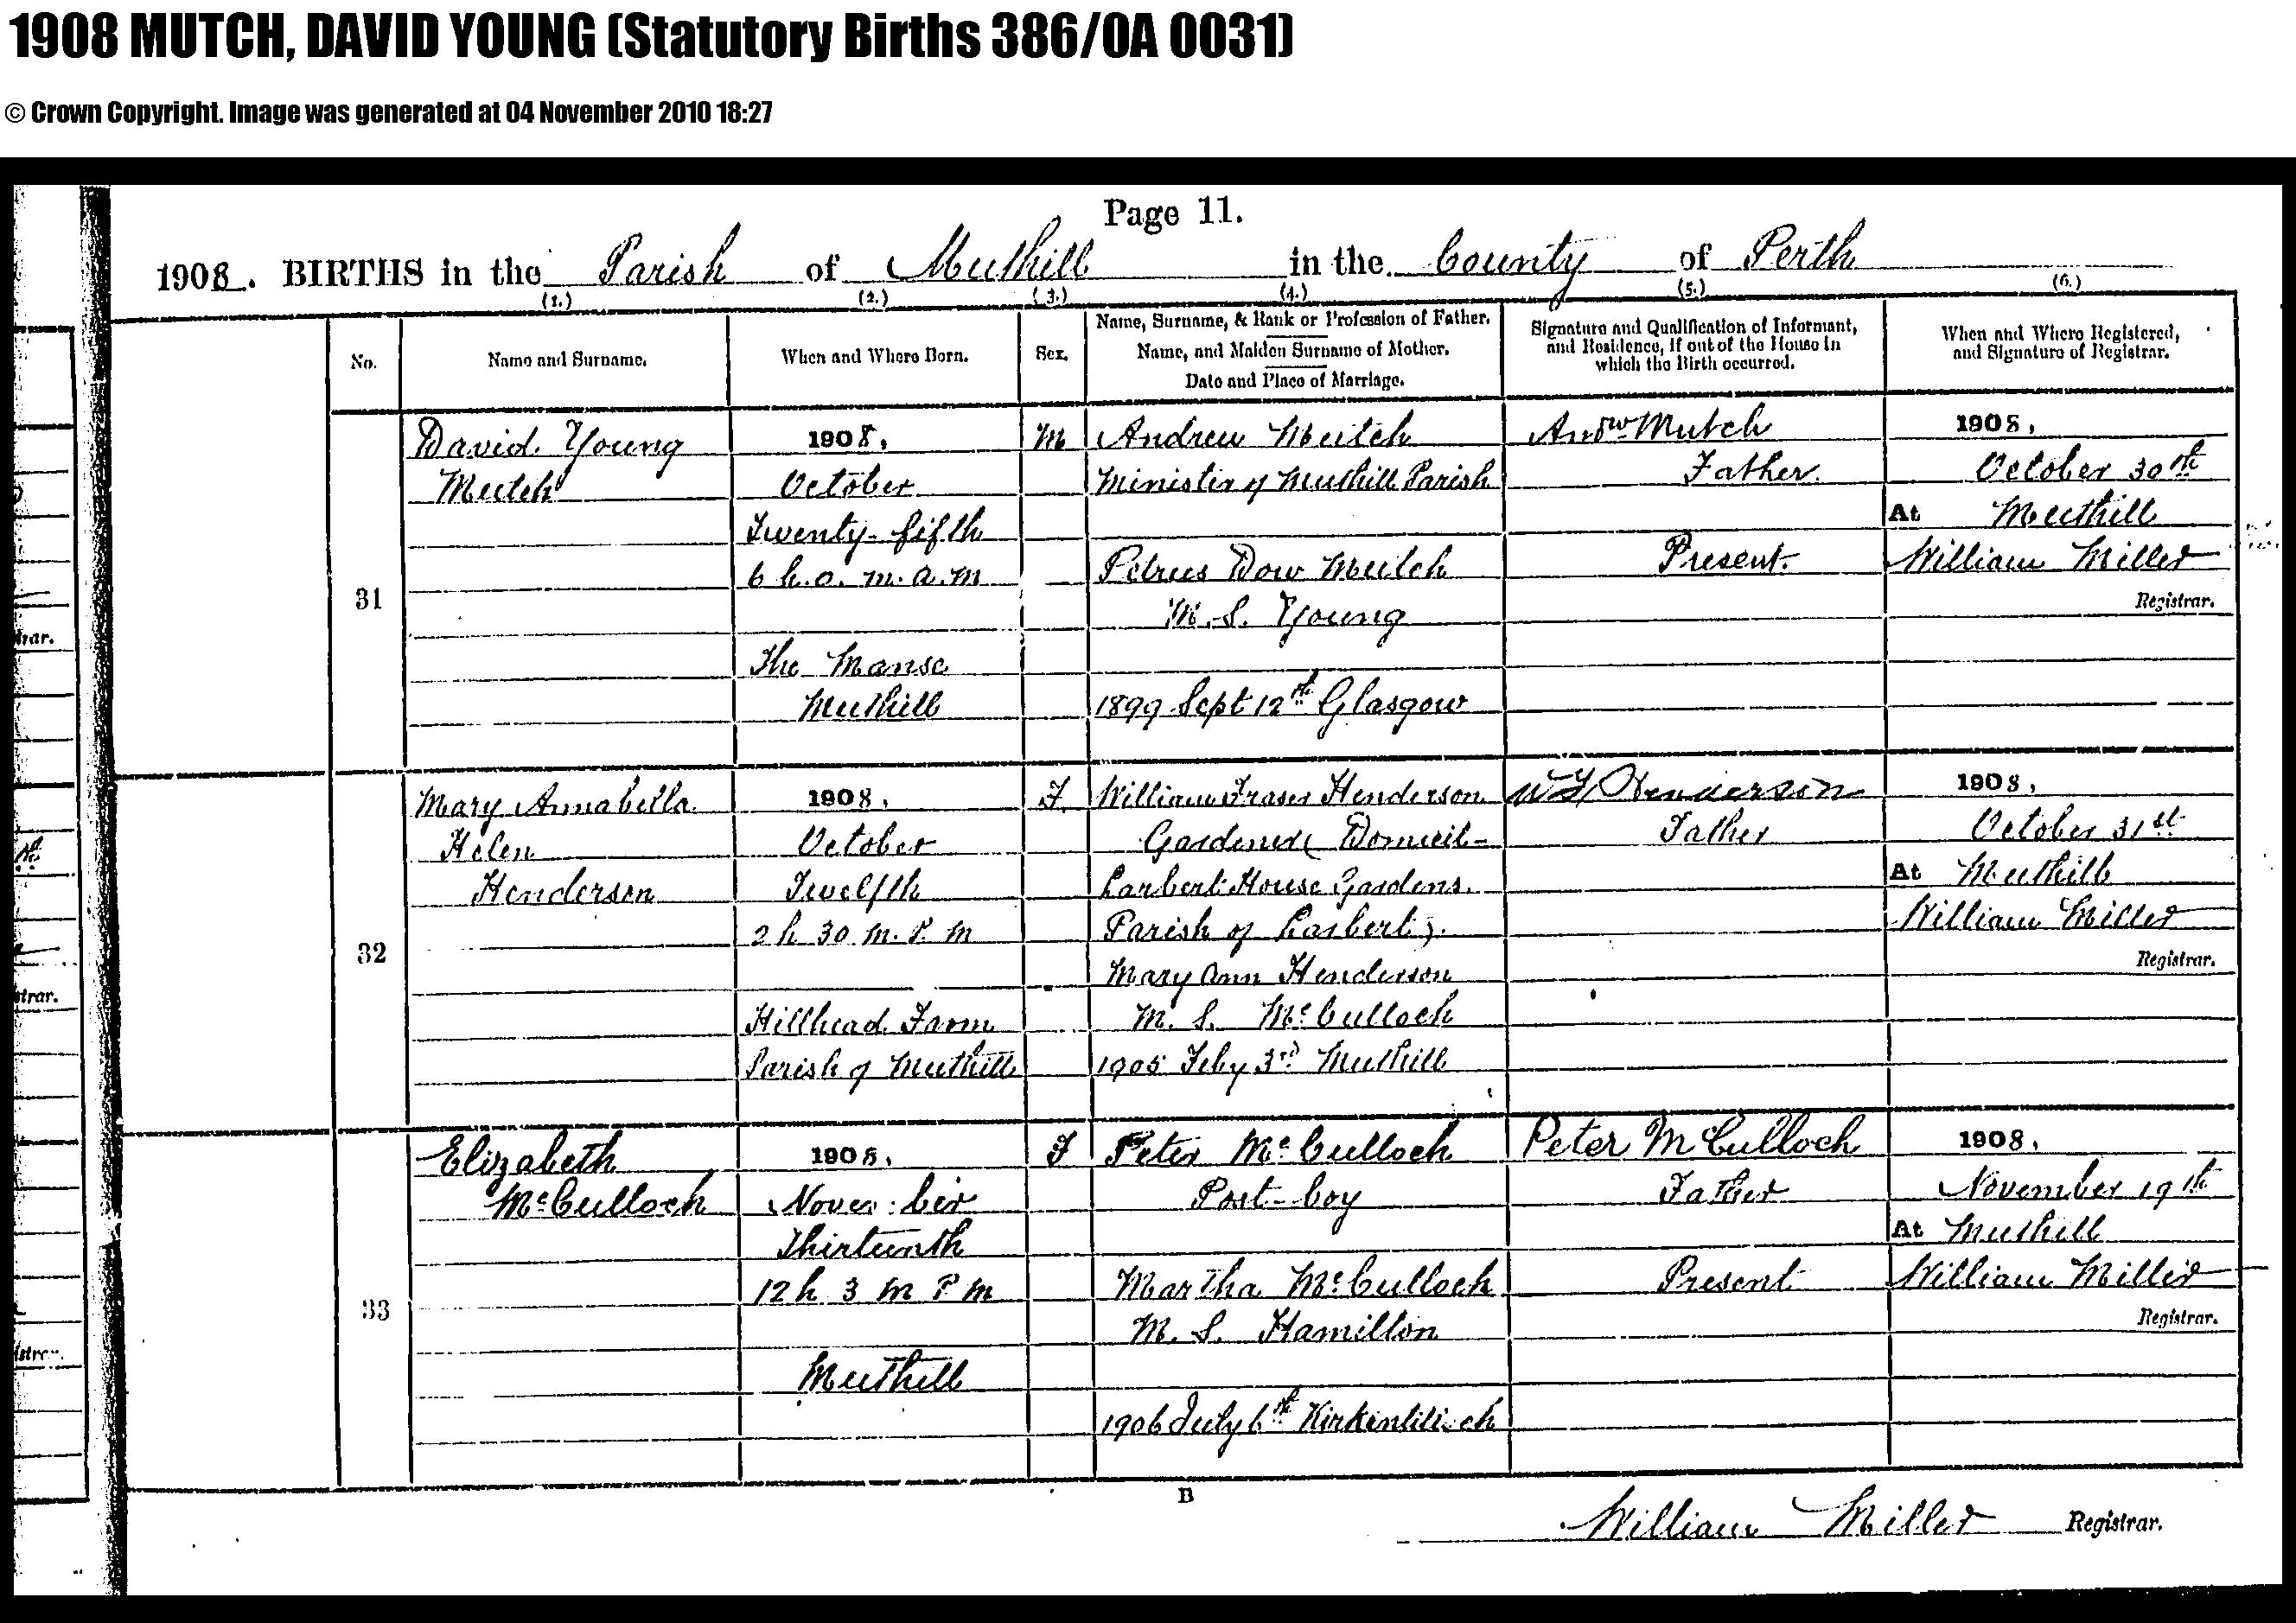 1908 MUTCH, DAVID YOUNG (Statutory Births 386/0A 0031)
© Crown Copyright. Image was generated at 04 November 2010 18:27
Page 11.
1908. BIRTHS in the Parish of Muthill in the County of Perth
(1.) (2.) (3.) (4.) (5.) (6.)
No.
Name and Surname.
When and Where Born.
Sex.
Name, Surname, & Rank or Profession of Father.
Name, and Maiden Surname of Mother.
Date and Place of Marriage.
Signature and Qualification of Informant,
and Residence, if out of the House in
which the Birth occurred.
When and Where Registered,
and Signature of Registrar.
31
David Young
Mutch
1908,
October
Twenty-fifth
6 h. 0. m. a. m
The Manse
Muthill
M
Andrew Mutch
Minister of Muthill Parish
Petrues Dow Mutch
M. S. Young
1899 Sept 12th Glasgow
Andw Mutch
Father
Present.
1908,
October 30th
At Muthill
William Miller
Registrar.
32
Mary Annabella
Helen
Henderson
1908,
October
Twelfth
2 h 30 m. P. m
Hillhead Farm
Parish of Muthill
F
William Fraser Henderson
Gardener (Domicil-
Larbert House Gardens.
Parish of Larbert).
Mary Ann Henderson
M. S. McCulloch
1905 Feby 3rd Muthill
W F Henderson
Father
1908,
October 31st
At Muthill
William Miller
Registrar.
33
Elizabeth
McCulloch
1908,
November
Thirteenth
12 h 3 m P m
Muthill
F
Peter McCulloch
Post-boy
Martha McCulloch
M. S. Hamilton
1906 July 6th Kirkintilloch
Peter McCulloch
Father
Present
1908,
November 19th
At Muthill
William Miller
Registrar.
B
William Miller Registrar.